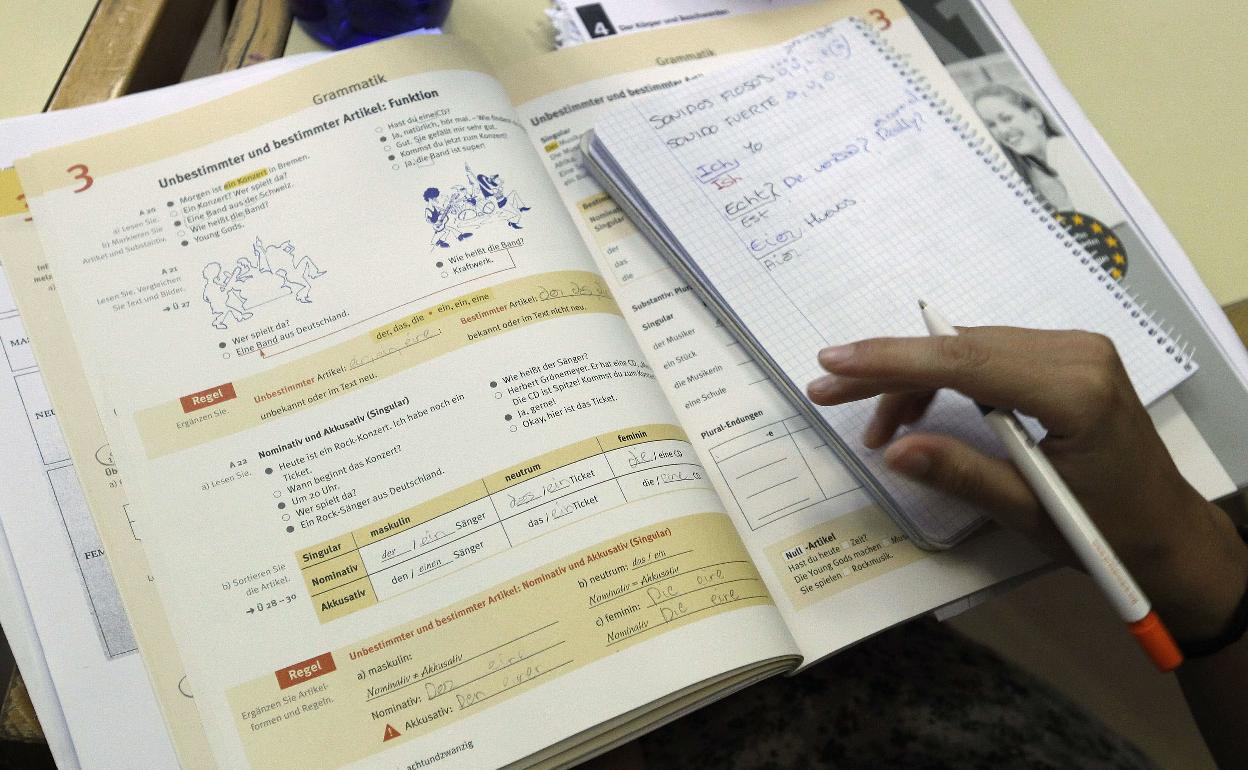 4 Der Körper und Beschwerden
Grammatik
3
Unbestimmter und bestimmter Artikel: Funktion
A 20
a) Lesen Sie.
b) Markieren Sie
Artikel und Substantiv.
Morgen ist ein Konzert in Bremen.
Ein Konzert? Wer spielt da?
Eine Band aus der Schweiz.
Wie heißt die Band?
Young Gods.
Hast du eine CD?
Ja, natürlich, hör mal. – Wie
Gut. Sie gefällt mir sehr gut.
Kommst du jetzt zum Konzert?
Ja, die Band ist super!
A 21
Lesen Sie. Vergleichen
Sie Text und Bilder.
→ Ü 27
Wer spielt da?
Eine Band aus Deutschland.
Wie heißt die Band?
Kraftwerk.
der, das, die • ein, ein, eine
Regel
Ergänzen Sie.
Unbestimmter Artikel:
unbekannt oder im Text neu.
Bestimmter Artikel: der das die
bekannt oder im Text nicht neu.
Nominativ und Akkusativ (Singular)
A 22
a) Lesen Sie.
Heute ist ein Rock-Konzert. Ich habe noch ein
Ticket.
Wann beginnt das Konzert?
Um 20 Uhr.
Wer spielt da?
Ein Rock-Sänger aus Deutschland.
Wie heißt der Sänger?
Herbert Grönemeyer. Er hat eine CD,
Die CD ist Spitze! Kommst du zum
Ja, gerne!
Okay, hier ist das Ticket.
b) Sortieren Sie
die Artikel.
→ Ü 28 – 30
Singular maskulin neutrum feminin
Nominativ der / ein Sänger das / ein Ticket die / eine CD
Akkusativ den / einen Sänger das / ein Ticket die / eine CD
Regel
Ergänzen Sie Artikel-
formen und Regeln.
Unbestimmter und bestimmter Artikel: Nominativ und Akkusativ (Singular)
a) maskulin:
Nominativ ≠ Akkusativ
Nominativ: Der eire
Akkusativ: Den eirer
b) neutrum: das / ein
Nominativ = Akkusativ
c) feminin: Die eire
Nominativ Die eire
achtundzwanzig
Grammatik
3
Unbestimmter und bestimmter
Singular
der
das
die
Substantiv:
Singular
der Musiker
ein Stück
die Musikerin
eine Schule
Plural-Endungen
-e
Null-Artikel
Hast du heute Zeit?
Die Young Gods machen
Sie spielen Rockmusik.
SONIDOS FLOJOS
SONIDO FUERTE
Ich, Yo
Ish
Echt? De verdad? Really?
Est
Eier, Huevos
Aier